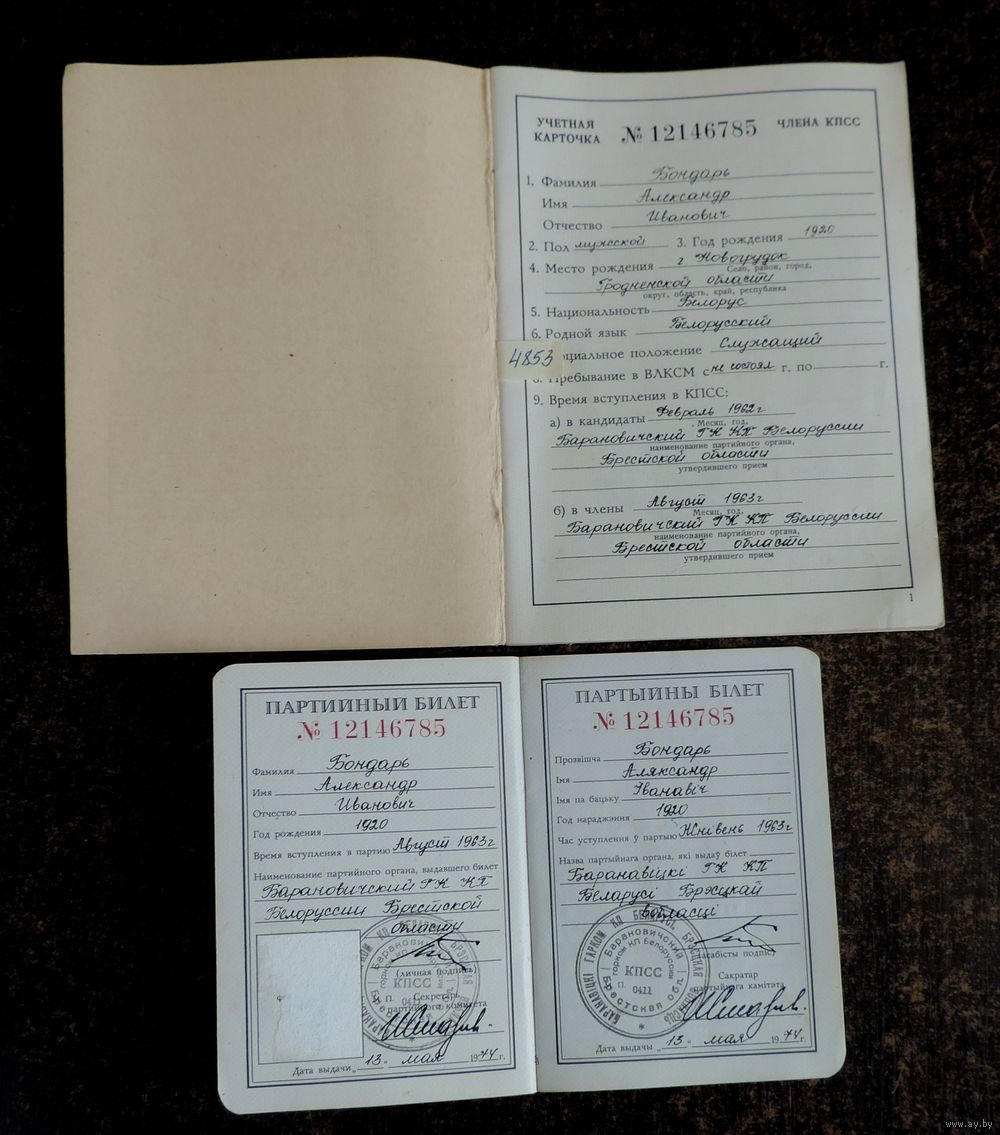 УЧЕТНАЯ КАРТОЧКА № 12146785 ЧЛЕНА КПСС
1. Фамилия Бондарь
Имя Александр
Отчество Иванович
2. Пол мужской 3. Год рождения 1920
4. Место рождения г Новогрудок
Село, район, город,
Гродненской области
округ, область, край, республика
5. Национальность Белорус
6. Родной язык Белорусский
4853 оциальное положение Служащий
8. Пребывание в ВЛКСМ с не состоял г. по г.
9. Время вступления в КПСС:
а) в кандидаты Февраль 1962г
Месяц, год,
Барановичский ГК КП Белоруссии
наименование партийного органа,
Брестской области
утвердившего прием
б) в члены Август 1963г
Месяц, год,
Барановичский ГК КП Белоруссии
наименование партийного органа,
Брестской области
утвердившего прием
1
ПАРТИЙНЫЙ БИЛЕТ
№ 12146785
Фамилия Бондарь
Имя Александр
Отчество Иванович
Год рождения 1920
Время вступления в партию Август 1963г
Наименование партийного органа, выдавшего билет
Барановичский ГК КП
Белоруссии Брестской
области
(личная подпись)
М. П. Секретарь
партийного комитета
Дата выдачи „13 мая 1974г.
ПАРТЫЙНЫ БІЛЕТ
№ 12146785
Прозвішча Бондарь
Імя Аляксандр
Імя па бацьку Іванавіч
Год нараджэння 1920
Час уступлення ў партыю Жнівень 1963г
Назва партыйнага органа, які выдаў білет
Баранавіцкі ГК КП
Беларусі Брэсцкай
вобласці
БАРАНАВІЦКІ ГАРКОМ КП БЕЛАРУСІ, БРЭСЦКАЯ ВОБЛАСЦЬ
Барановичский горком КП Белоруссии
КПСС
0411
Брестская обл.
(асабісты подпіс)
М. П. Сакратар
партыйнага камітэта
Дата выдачы „13 мая 1974г.
www.ay.by